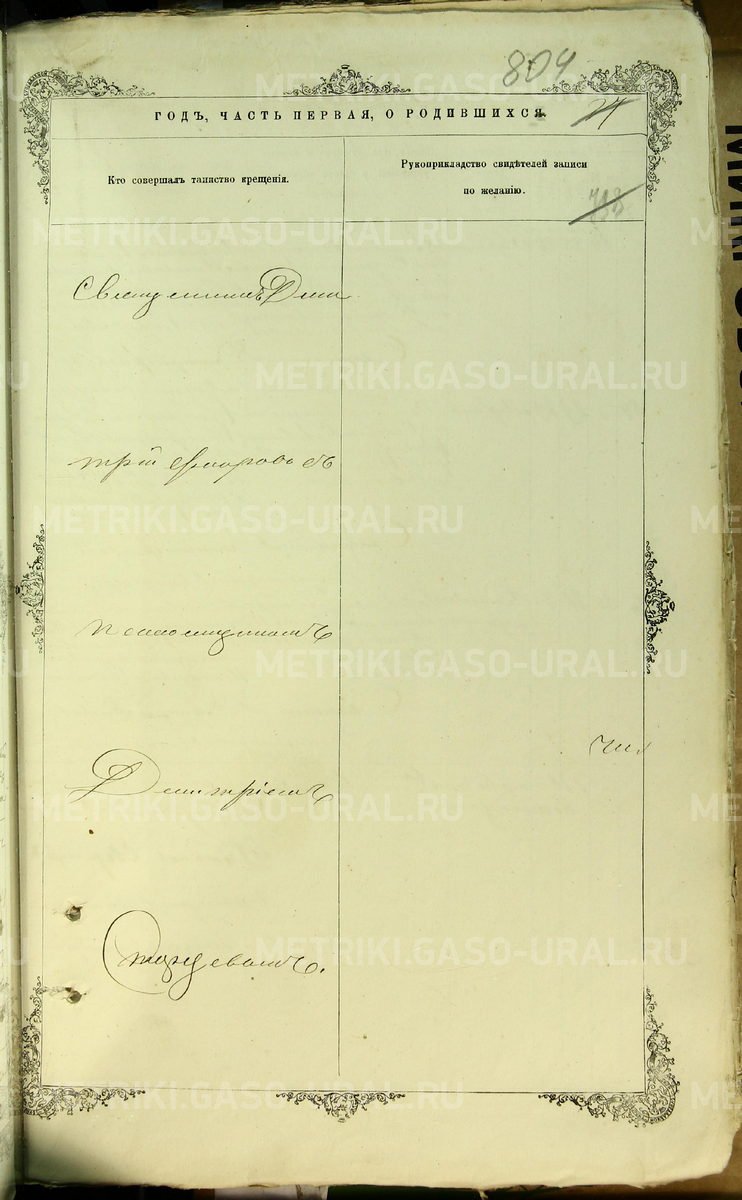 804
ГОДЪ, ЧАСТЬ ПЕРВАЯ, О РОДИВШИХСЯ.
Кто совершалъ таинство крещенія.
Рукоприкладство свидѣтелей записи
по желанію.
Священникъ Дми
трій Ѳедоровъ съ
псаломщикомъ
Димитріемъ
METRIKI.GASO-URAL.RU